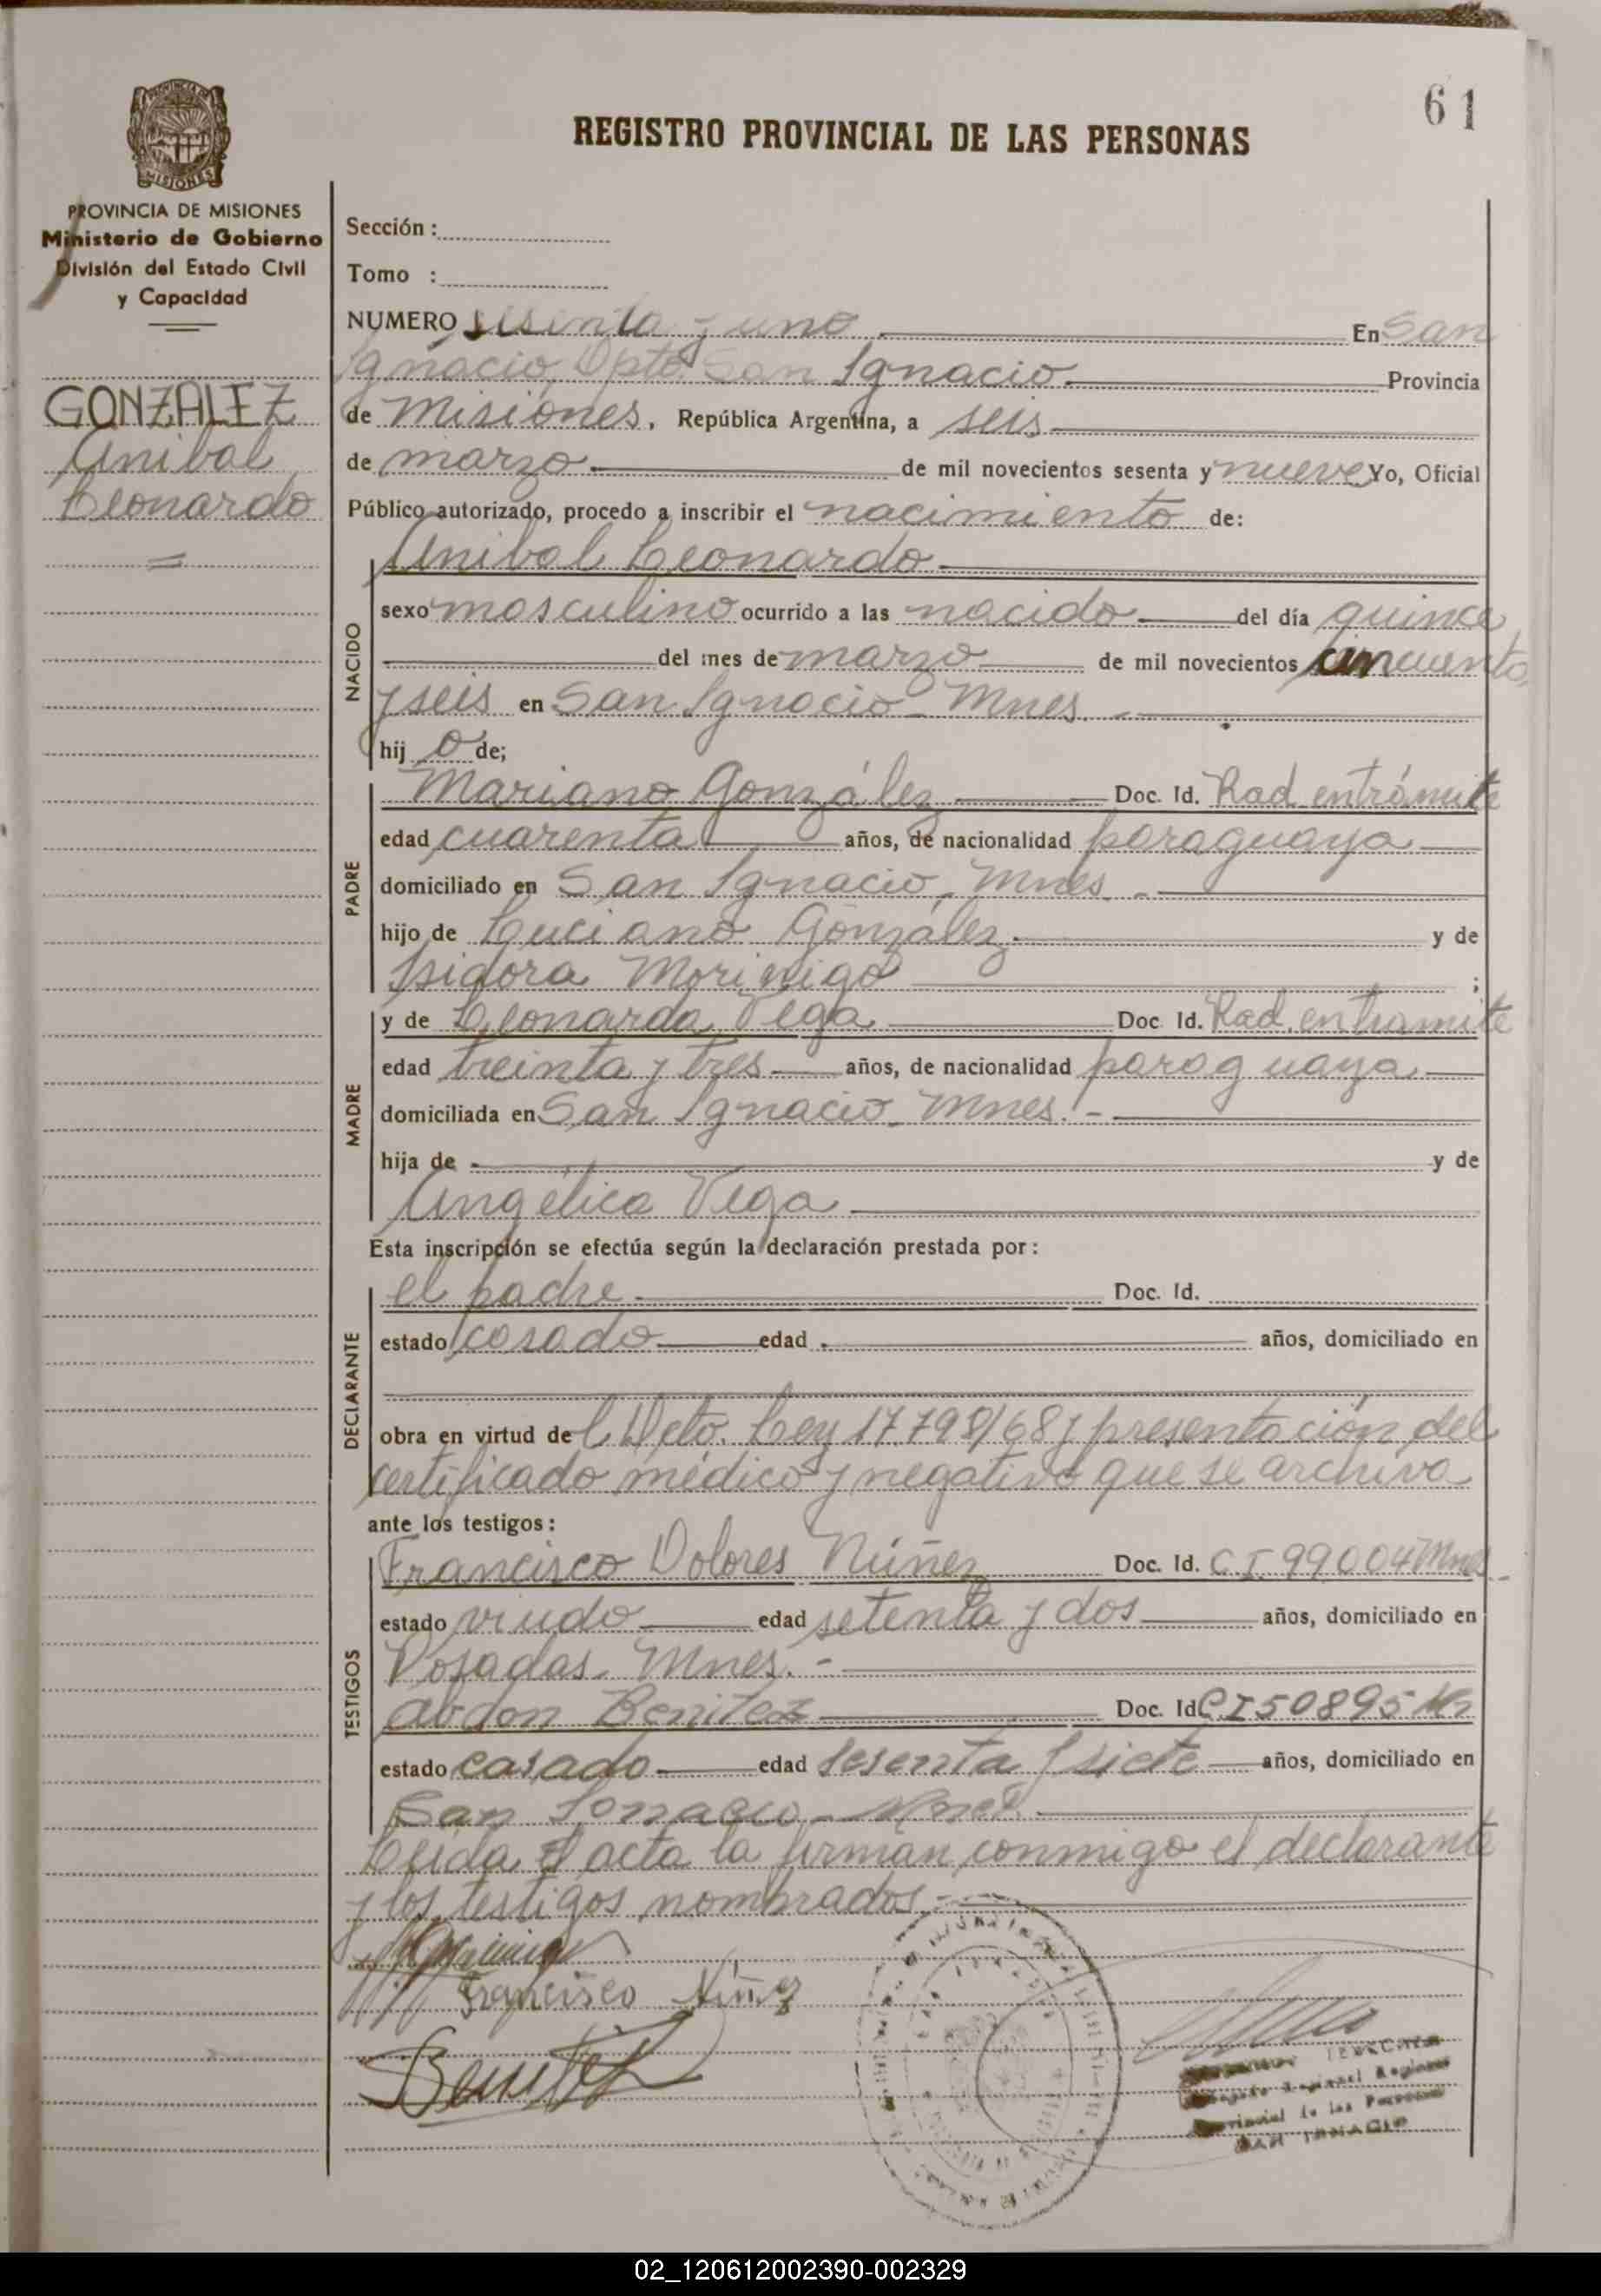 61
REGISTRO PROVINCIAL DE LAS PERSONAS
MISIONES
PROVINCIA DE MISIONES
Ministerio de Gobierno
División del Estado Civil
y Capacidad
GONZALEZ
Anibal
Leonardo
Sección :
Tomo :
NUMERO sesenta y uno En San
Ignacio, Dpto. San Ignacio Provincia
de Misiones. República Argentina, a seis
de marzo de mil novecientos sesenta y nueve Yo, Oficial
Público autorizado, procedo a inscribir el nacimiento de:
Anibal Leonardo
NACIDO
sexo masculino ocurrido a las nacido del día quince
del mes de marzo de mil novecientos cincuenta
y seis en San Ignacio - Mnes. -
hij o de;
PADRE
Mariano González Doc. Id. Rad. en trámite
edad cuarenta años, de nacionalidad paraguaya
domiciliado en San Ignacio - Mnes. -
hijo de Luciano González y de
Isidora Morinigo ;
MADRE
y de Leonarda Vega Doc. Id. Rad. en tramite
edad treinta y tres años, de nacionalidad paraguaya
domiciliada en San Ignacio - Mnes. -
hija de y de
Angélica Vega
Esta inscripción se efectúa según la declaración prestada por :
DECLARANTE
el padre Doc. Id.
estado casado edad años, domiciliado en
obra en virtud de l Dcto. Ley 17798/68 y presentación del
certificado médico y negativo que se archiva
ante los testigos :
TESTIGOS
Francisco Dolores Núñez Doc. Id. C.I. 99004 Mnes.
estado viudo edad setenta y dos años, domiciliado en
Posadas - Mnes. -
Abdon Benitez Doc. Id C.I 50895
estado casado edad sesenta y siete años, domiciliado en
San Ignacio - Mnes.
Leida el acta la firman conmigo el declarante
y los testigos nombrados. -
Francisco Núñez
Benitez
Regional
Provincial de las Personas
SAN IGNACIO
02_120612002390-002329